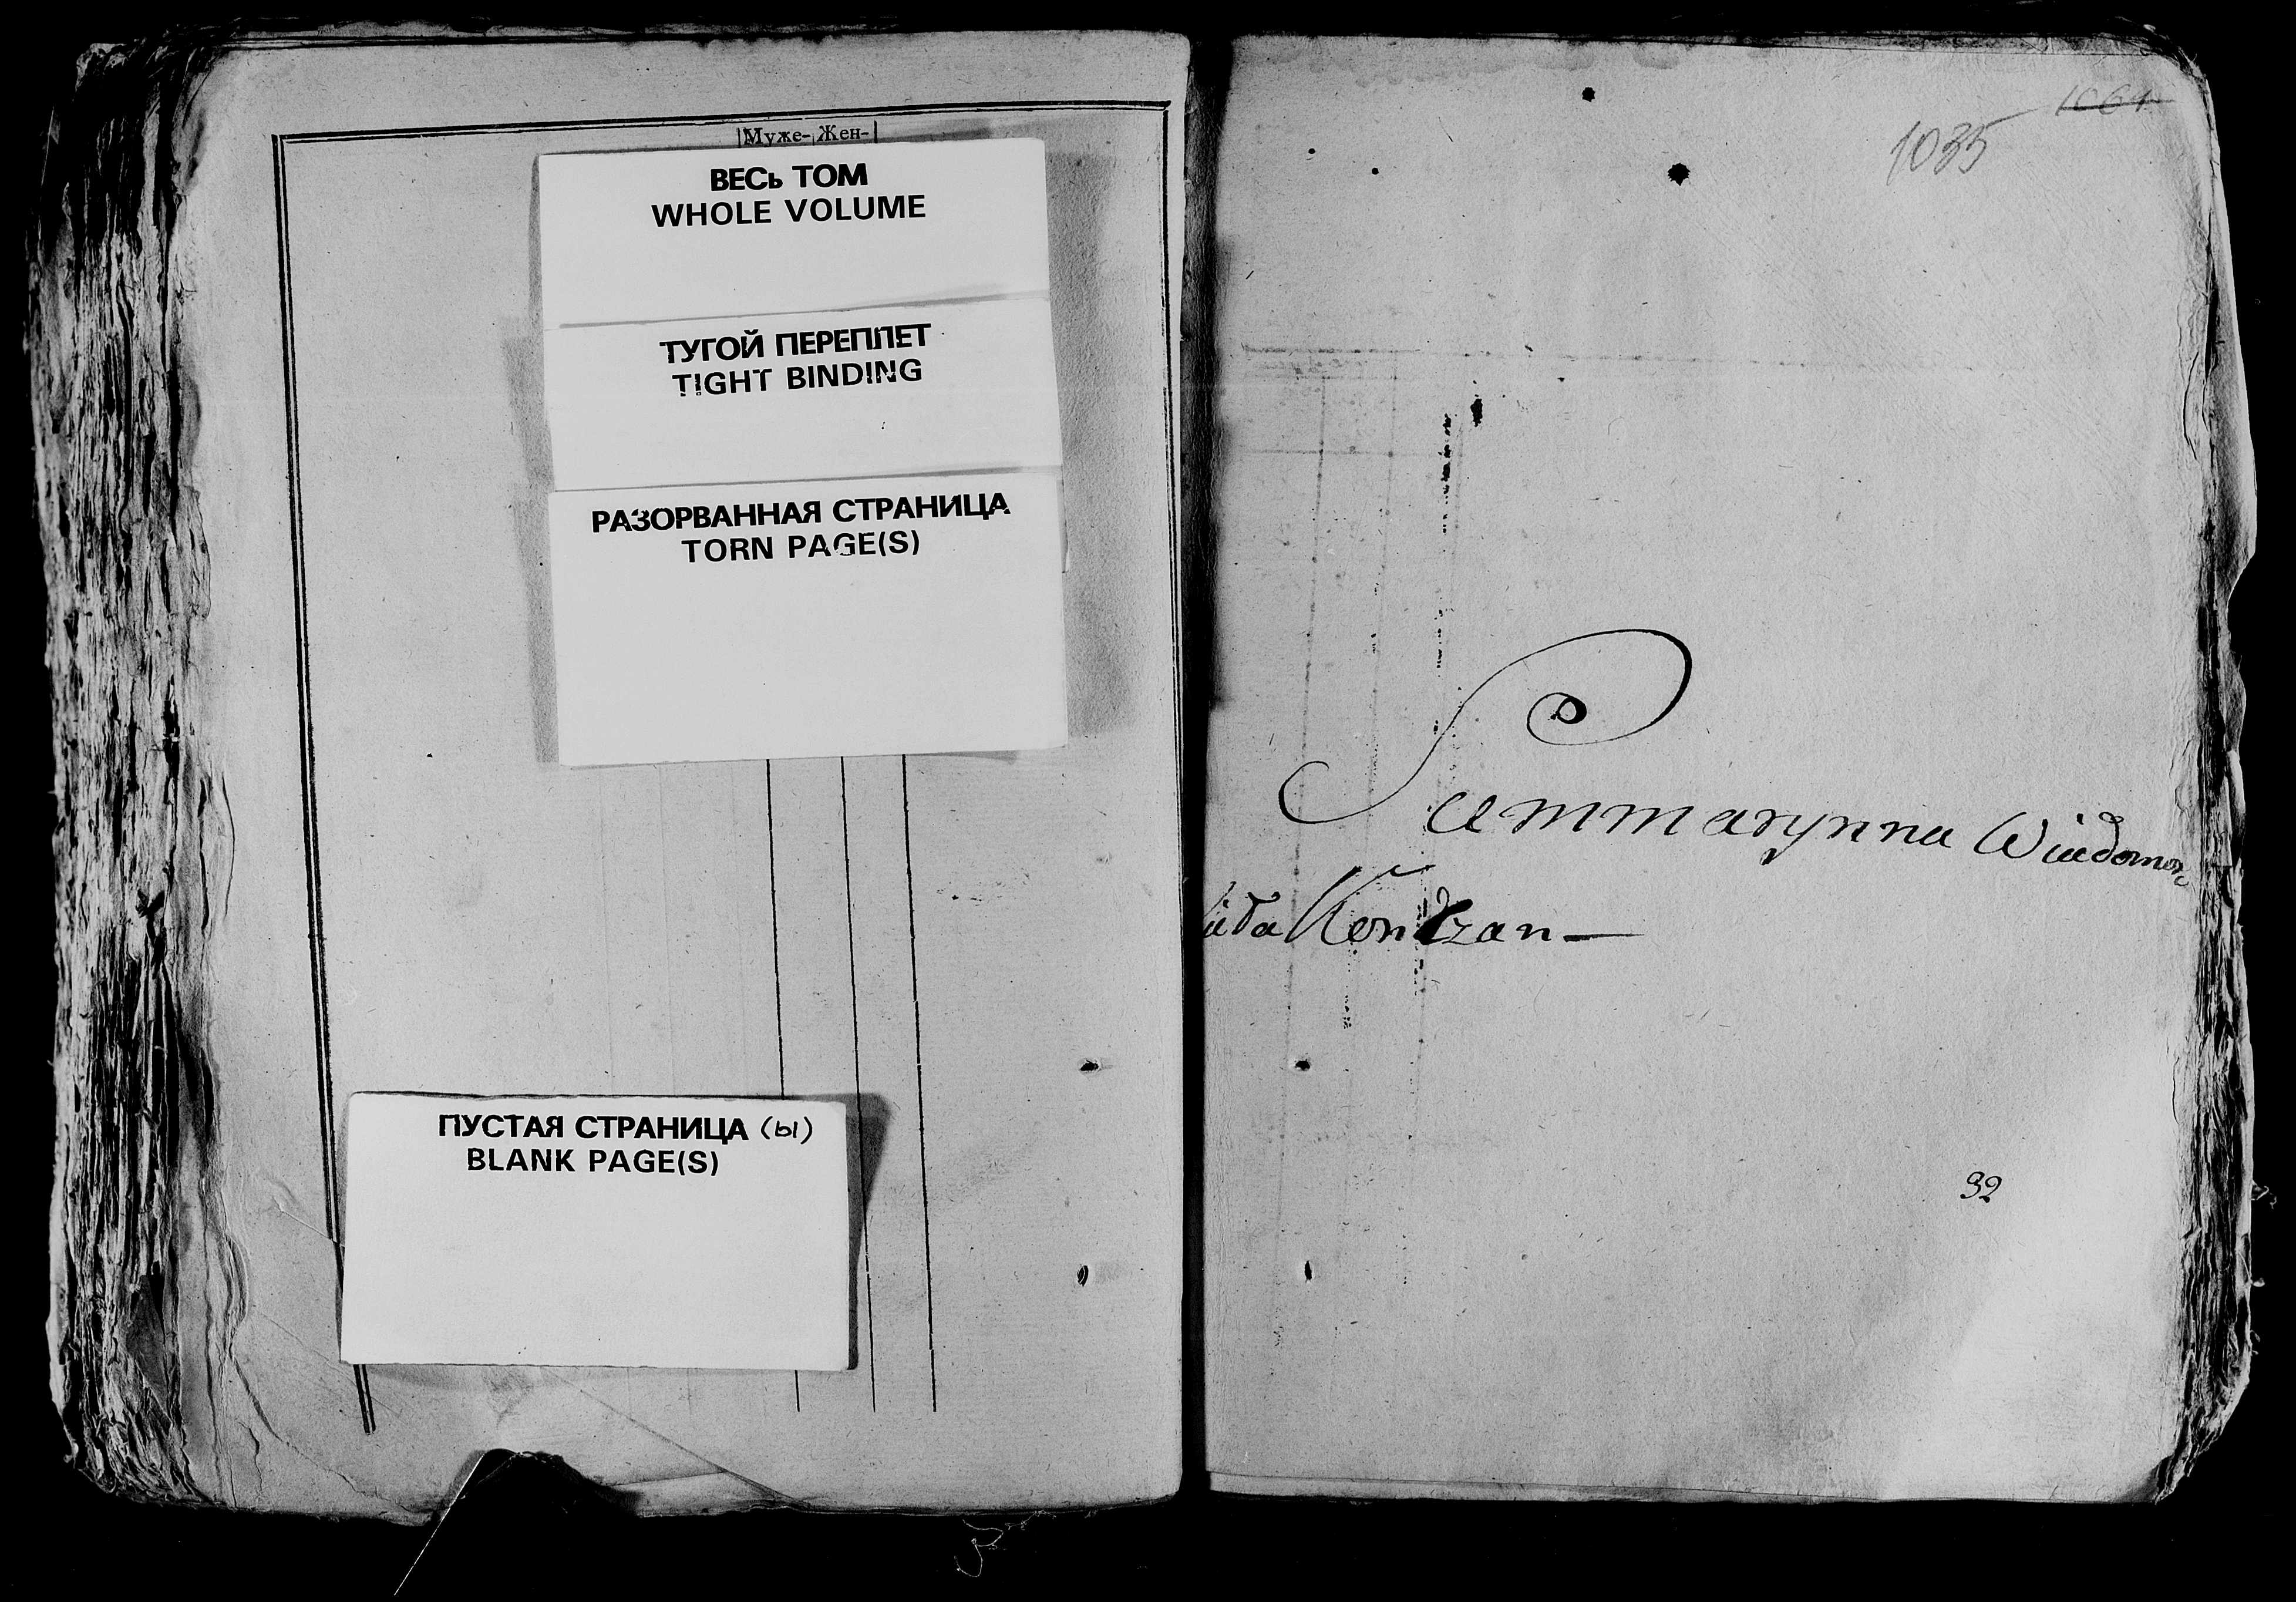 Муже- Жен-
ВЕСЬ ТОМ
WHOLE VOLUME
ТУГОЙ ПЕРЕПЛЕТ
TIGHT BINDING
РАЗОРВАННАЯ СТРАНИЦА
TORN PAGE(S)
ПУСТАЯ СТРАНИЦА (Ы)
BLANK PAGE(S)
1061
1035
Summarynna Wiadomos
Kondzan—
32